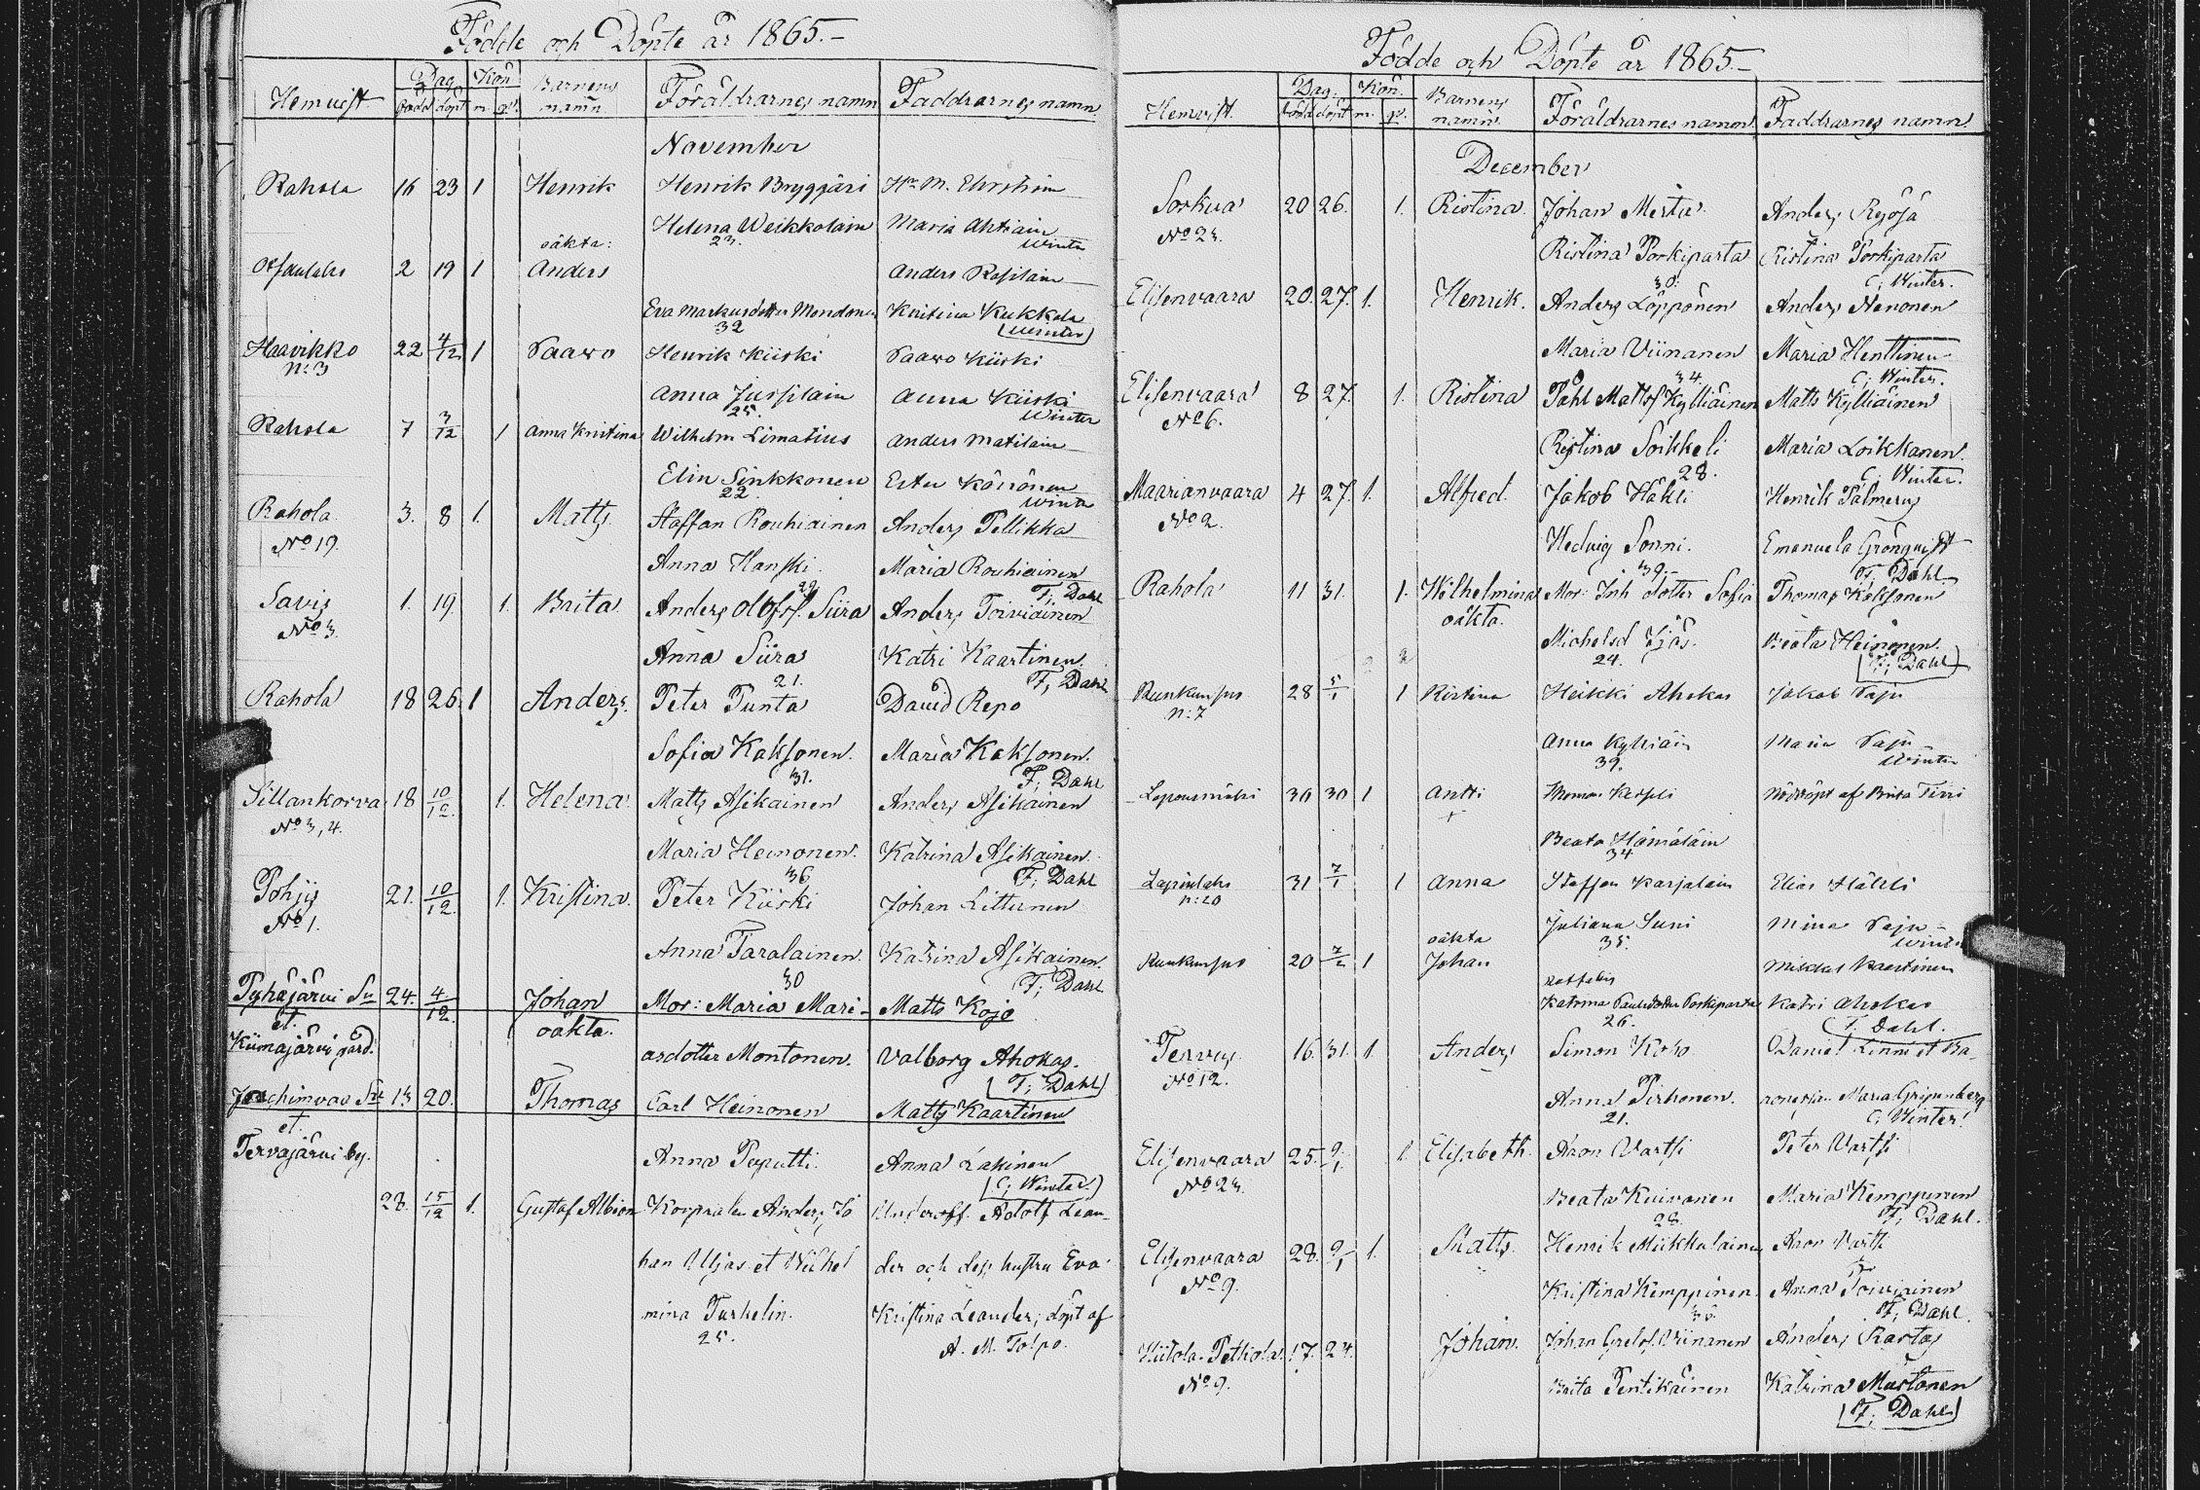 Födde och Döpte år 1865.-
Hemvist Dag Kön Barnens Föräldrarnes namn Faddrarnes namn
född döpt m. qv. namn
November
Rahola 16 23 1 Henrik Henrik Bryggäri Hr M. Ehrström
Helena Weikkolain Maria Ahtiain
23. Winter
oäkta:
2 19 1 Anders Anders Rasilain
Eva Markusdotter Mondonen Kristina Kukkola
32 (Winter)
Haavikko 22 4/12 1 Paavo Henrik Kiiski Paavo Kiiski
n:3
Anna Jussilain Anna Kiiski
25. Winter
Rahola 7 3/12 1 Anna Kristina Wilhelm Limatius Anders Matilain
Elin Sinkkonen Ester Könönen
22 Winter
Rahola 3. 8 1. Matts Staffan Rouhiainen Anders Pellikka
No 19.
Anna Hanski. Maria Rouhiainen
29 F; Dahl
Savis 1. 19. 1. Brita Anders Olofsf. Siira Anders Toiviainen
No 3.
Anna Siira Katri Kaartinen.
21. F; Dahl
Rahola 18 26 1 Anders. Peter Punta David Repo
Sofia Kaksonen. Maria Kaksonen.
31. F; Dahl
Sillankorva 18 10/12. 1. Helena. Matts Asikainen Anders Asikainen
No 3, 4.
Maria Heinonen. Katrina Asikainen.
36 F; Dahl
Pohjis 21. 10/12. 1. Kristina. Peter Kiiski Johan Littunen
No 1.
Anna Taralainen. Katrina Asikainen.
30 F; Dahl
Pyhäjärvi Sn 24. 4/12. Johan Mor: Maria Mari- Matts Kojo
et. oäkta.
Kiimajärvi gård. asdotter Montonen. Valborg Ahokas.
(F; Dahl)
Joachimvaa Sn 13 20. Thomas Carl Heinonen Matts Kaartinen
et.
Tervajärvi by. Anna Paputti. Anna Lakinen
(C; Winter)
28. 15/12 1. Gustaf Albion Korpralen Anders Jo Underoff. Adolf Lean-
han Uljas et Wilhel der och dess hustru Eva
mina Turkelin. Kristina Leander; döpt af
25. A. M. Tolpo.
Födde och Döpte år 1865.-
Hemvist. Dag. Kön. Barnens Föräldrarnes namn Faddrarnes namn
född döpt m. qv. namn.
December
Sorkua 20 26. 1. Ristina. Johan Mesta. Anders Ryösä
No 23.
Ristina Porkiparta Ristina Porkiparta
30. C; Winter.
Elisenvaara 20. 27. 1. Henrik. Anders Löppönen Anders Nenonen
Maria Viinanen Maria Henttinen
34. C; Winter.
Elisenvaara 8 27. 1. Ristina Påhl Mattsf Kylliäinen Matts Kylliäinen
No 6.
Ristina Soikkeli Maria Loikkanen.
28. C; Winter.
Maarianvaara 4 27. 1. Alfred. Jakob Häkli Henrik Palmerus
No 2.
Hedvig Sonni. Emanuela Grönqvist
39.- F; Dahl
Rahola 11 31. 1. Wilhelmina Mor: Inh dotter Sofia Thomas Kaksonen
oäkta.
Michelsd Ijäs. Beata Heinonen.
24. (F; Dahl)
28 5/1 1 Ristina Heikki Ahokas Jakob Paju
n:7
Anna Kylliäin Maria Paju
39. Winter
30 30 1 Antti Thomas Nöddöpt af Brita Tirri
+
Beata Hämäläin
34
31 7/1 1 Anna Staffan Karjalain Elias Häkli
n:20
Juliana Suni Mina Paju
35. Winter
oäkta
20 7/1 1 Johan Miklas Kaartinen
Katrina Paulsdotter Porkiparta Katri Ahokas
26. (F; Dahl.
Tervus 16. 31. 1. Anders Simon Koso Daniel Linni et Ba-
No 12.
Anna Pirhonen. ronessan Maria Gripenberg
21. C; Winter!
Elisenvaara 25. 9/1 1 Elisabeth. Aron Vartsi Peter Vartsi
No 23.
Beata Kuivanen Maria Kemppinen
28. F; Dahl.
Elisenvaara 28. 9/1 1. Matts. Henrik Miikkulainen Aron Vartsi
No 9.
Kristina Kemppinen Anna Toiviainen
36. F; Dahl.
Hiitola Petkola. 17. 24. Johan. Johan Grelsf. Viinanen Anders Kartas
No 9.
Brita Pentikäinen Katrina Mustonen
(F; Dahl)